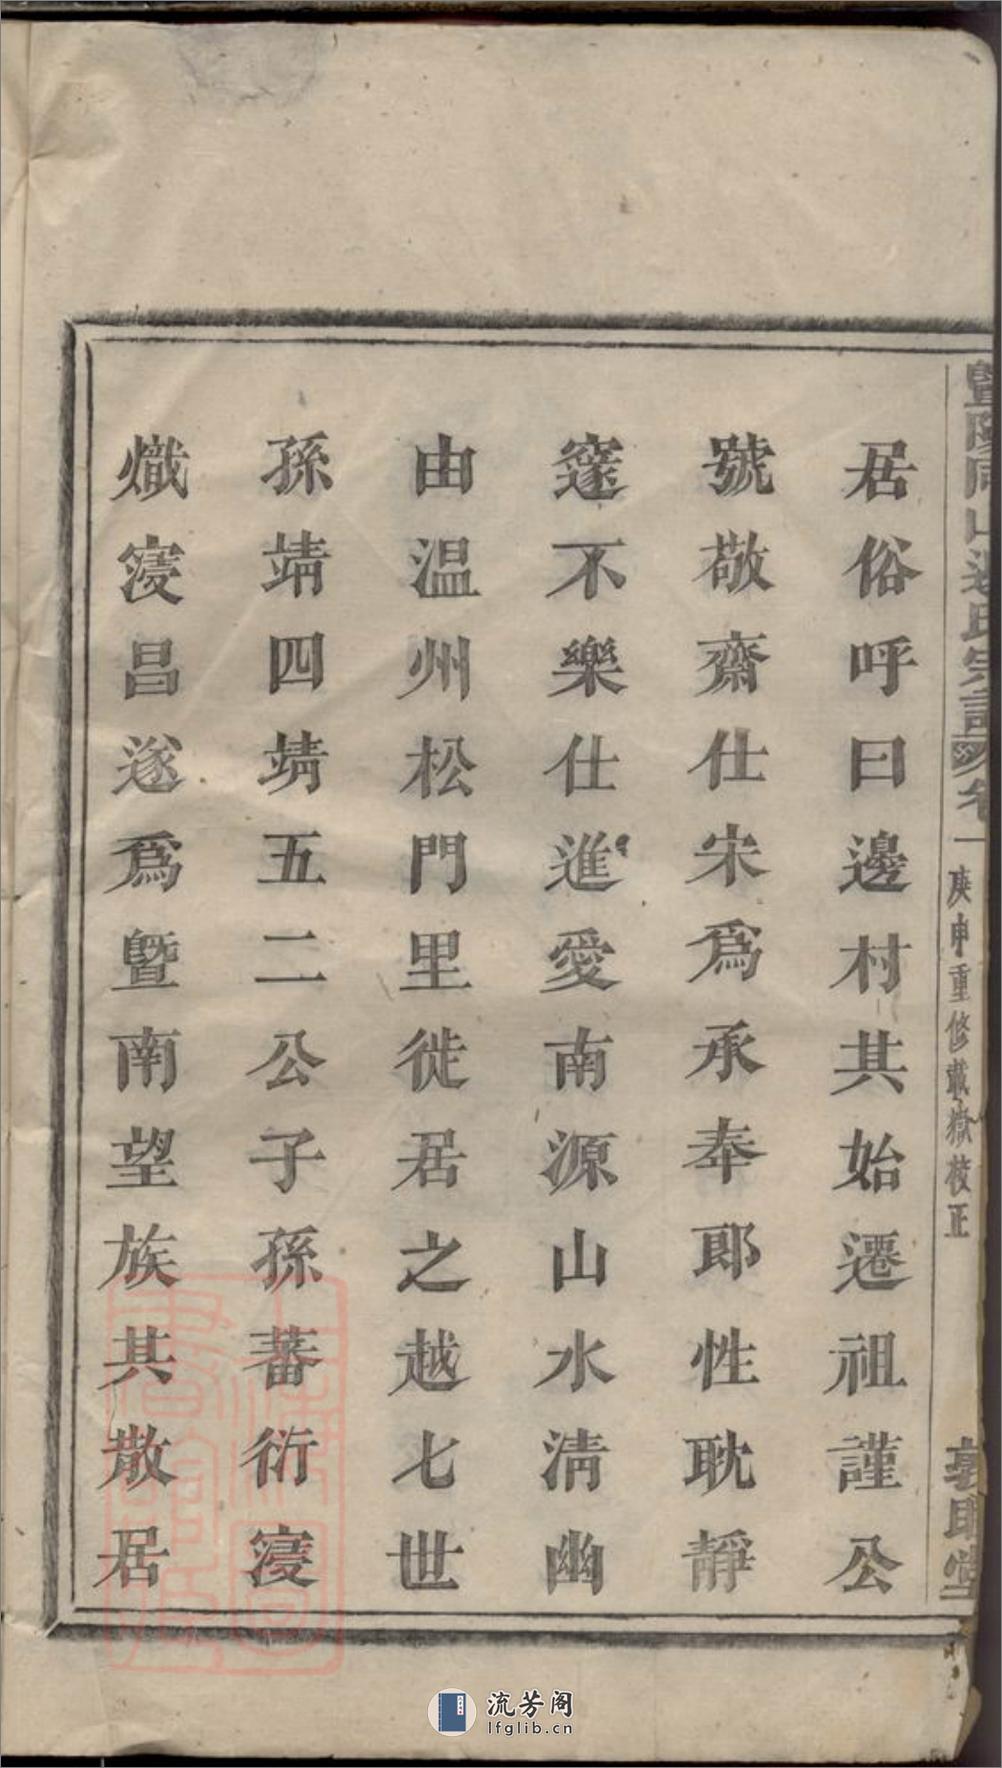 暨陽同山邊氏宗譜
卷一
庚申重修戴嶽校正
敦睦堂
居俗呼曰邊村其始遷祖謹公
號敬齋仕宋爲承奉郎性耽靜
窪不樂仕進愛南源山水清幽
由温州松門里徙居之越七世
孫靖四靖五二公子孫蕃衍寖
熾寖昌遂爲暨南望族其散居
流芳阁
lfglib.cn